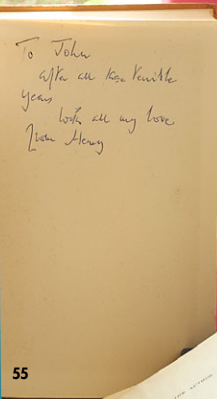 To John
after all these terrible
years
with all my love
from Henry
55
THE AUTHOR